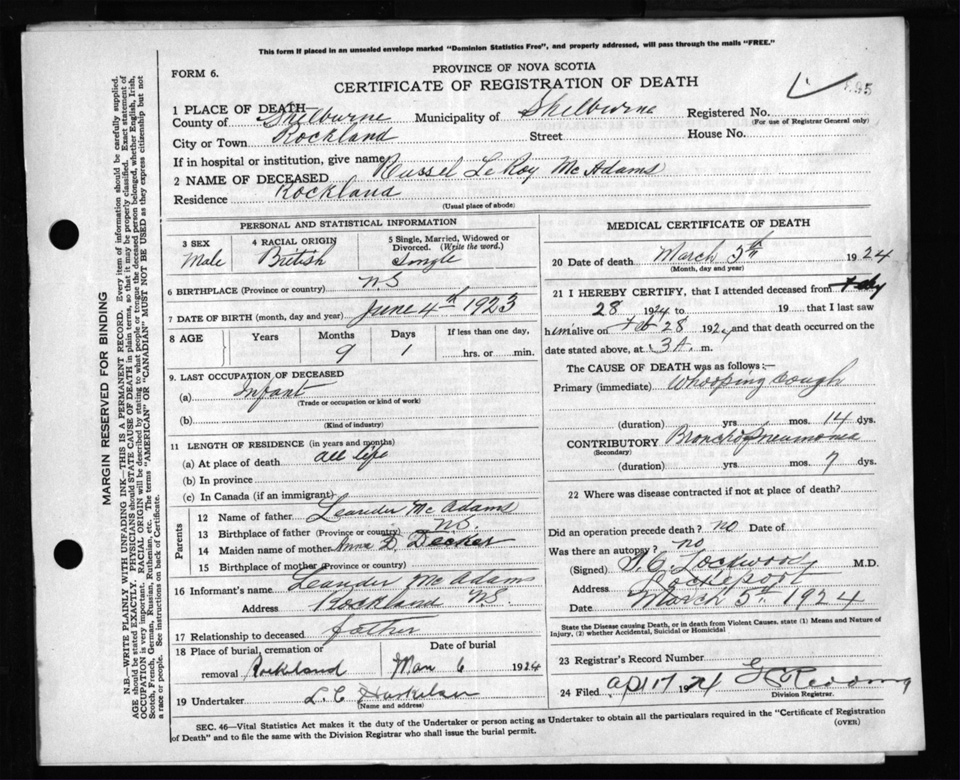 This form if placed in an unsealed envelope marked "Dominion Statistics Free", and properly addressed, will pass through the mails "FREE."
FORM 6.
PROVINCE OF NOVA SCOTIA
CERTIFICATE OF REGISTRATION OF DEATH
1 PLACE OF DEATH
County of Shelburne Municipality of Shelburne Registered No.
(For use of Registrar General only)
City or Town Rockland Street House No.
If in hospital or institution, give name
2 NAME OF DECEASED Russel LeRoy McAdams
Residence Rockland
(Usual place of abode)
PERSONAL AND STATISTICAL INFORMATION
3 SEX Male
4 RACIAL ORIGIN British
5 Single, Married, Widowed or Divorced. (Write the word.) Single
6 BIRTHPLACE (Province or country) NS
7 DATE OF BIRTH (month, day and year) June 4th 1923
8 AGE Years Months Days If less than one day,
9 1 hrs. or min.
9. LAST OCCUPATION OF DECEASED
(a) Infant
(Trade or occupation or kind of work)
(b)
(Kind of industry)
11 LENGTH OF RESIDENCE (in years and months)
(a) At place of death all life
(b) In province
(c) In Canada (if an immigrant)
Parents
12 Name of father Leander McAdams
13 Birthplace of father (Province or country) NS.
14 Maiden name of mother Anna D. Decker
15 Birthplace of mother (Province or country)
16 Informant's name Leander McAdams
Address Rockland NS.
17 Relationship to deceased father
18 Place of burial, cremation or removal Rockland Date of burial Mar 6 1924
19 Undertaker L.C.
(Name and address)
MEDICAL CERTIFICATE OF DEATH
20 Date of death March 5th 1924
(Month, day and year)
21 I HEREBY CERTIFY, that I attended deceased from Feby
28 1924 to 19 that I last saw
him alive on Feb 28 1924 and that death occurred on the
date stated above, at 3 A. m.
The CAUSE OF DEATH was as follows:—
Primary (immediate) Whooping Cough
(duration) yrs. mos. 14 dys.
CONTRIBUTORY Broncho Pneumonia
(Secondary)
(duration) yrs. mos. 7 dys.
22 Where was disease contracted if not at place of death?
Did an operation precede death? no Date of
Was there an autopsy? no
(Signed) Lockwood M.D.
Address Lockeport
Date March 5th 1924
State the Disease causing Death, or in death from Violent Causes, state (1) Means and Nature of
Injury, (2) whether Accidental, Suicidal or Homicidal
23 Registrar's Record Number
24 Filed Apl 17 1924
Division Registrar.
SEC. 46—Vital Statistics Act makes it the duty of the Undertaker or person acting as Undertaker to obtain all the particulars required in the "Certificate of Registration
of Death" and to file the same with the Division Registrar who shall issue the burial permit. (OVER)
MARGIN RESERVED FOR BINDING
N.B.—WRITE PLAINLY WITH UNFADING INK—THIS IS A PERMANENT RECORD. Every item of information should be carefully supplied.
AGE should be stated EXACTLY. PHYSICIANS should STATE CAUSE OF DEATH in plain terms, so that it may be properly classified. Exact statement of
OCCUPATION is very important. RACIAL ORIGIN will be described by stating to what people or tongue the deceased person belonged, whether English, Irish,
Scotch, French, German, Russian, Ruthenian, etc. The terms "AMERICAN" or "CANADIAN" MUST NOT BE USED as they express citizenship but not
a race or people. See instructions on back of Certificate.